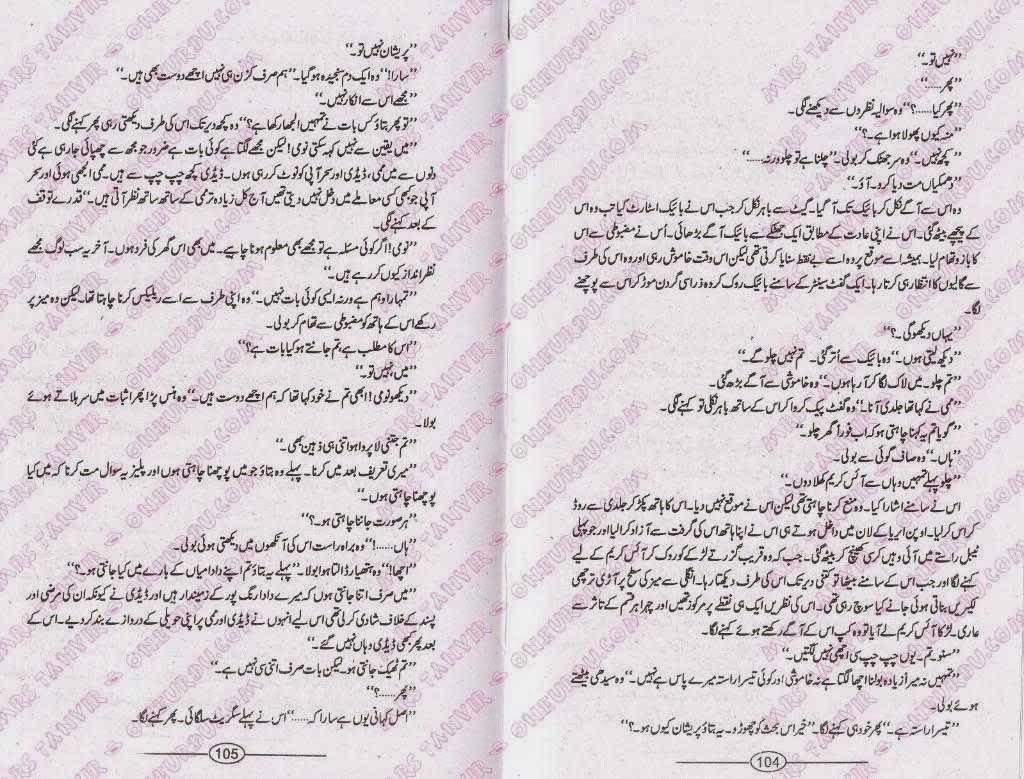 ”نہیں تو۔“
”پھر......“
”پھر کیا......؟“ وہ سوالیہ نظروں سے دیکھنے لگی۔
”منہ کیوں پھولا ہوا ہے۔؟“
”کچھ نہیں۔“ وہ سر جھٹک کر بولی۔ ”چلنا ہے تو چلو ورنہ......“
”دھمکیاں مت دیا کرو۔ آؤ۔“
وہ اس سے آگے نکل کر بائیک تک آ گیا۔ گیٹ سے باہر نکل کر جب اس نے بائیک اسٹارٹ کیا تب وہ اس
کے پیچھے بیٹھ گئی۔ اس نے اپنی عادت کے مطابق ایک جھٹکے سے بائیک آگے بڑھائی۔ اُس نے مضبوطی سے اس
کا بازو تھام لیا۔ ہمیشہ اسے موقع پر وہ اسے بے نقط سنایا کرتی تھی لیکن اس وقت خاموش رہی اور وہ اس کی طرف
سے گالیوں کا انتظار ہی کرتا رہا۔ ایک گفٹ سینٹر کے سامنے بائیک روک کر وہ ذرا سی گردن موڑ کر اس سے پوچھنے
لگا۔
”یہاں دیکھو گی۔؟“
”دیکھ لیتی ہوں۔“ وہ بائیک سے اُتر گئی۔ تم نہیں چلو گے۔“
”تم چلو۔ میں لاک لگا کر آ رہا ہوں۔“ وہ خاموشی سے آگے بڑھ گئی۔
”ممی نے کہا تھا جلدی آنا۔“ وہ گفٹ پیک کروا کر اس کے ساتھ باہر نکلی تو کہنے لگی۔
”گویا تم یہ کہنا چاہتی ہو کہ اب فوراً گھر چلو۔“
”ہاں۔“ وہ صاف گوئی سے بولی۔
”چلو پہلے تمہیں وہاں سے آئس کریم کھلا دوں۔“
اس نے سامنے اشارا کیا۔ وہ منع کرنا چاہتی تھی لیکن اس نے موقع نہیں دیا۔ اس کا ہاتھ پکڑ کر جلدی سے روڈ
کراس کر لیا۔ اوپن ایریا کے لان میں داخل ہوتے ہی اس نے اپنا ہاتھ اس کی گرفت سے آزاد کرا لیا اور جو پہلی
ٹیبل راستے میں آئی وہیں کرسی کھینچ کر بیٹھ گئی۔ جب کہ وہ قریب گزرتے لڑکے کو روک کر آئس کریم کے لیے
کہنے لگا اور جب اس کے سامنے بیٹھا تو کتنی دیر تک اس کی طرف دیکھتا رہا۔ انگلی سے میز کی سطح پر آڑی ترچھی
لکیریں بناتی ہوئی جانے کیا سوچ رہی تھی۔ اس کی نظریں ایک ہی نقطے پر مرکوز تھیں اور چہرا ہر قسم کے تاثر سے
عاری۔ لڑکا آئس کریم لے آیا تو وہ کپ اس کے آگے رکھتے ہوئے کہنے لگا۔
”سنو تم۔ یوں چپ چپ سی اچھی نہیں لگتیں۔“
”تمہیں نہ میرا زیادہ بولنا اچھا لگتا ہے نہ خاموشی اور کوئی تیسرا راستہ میرے پاس ہے نہیں۔“ وہ سیدھی بیٹھتے
ہوئے بولی۔
”تیسرا راستہ ہے۔“ پھر خود ہی کہنے لگا۔ ”خیر اس بحث کو چھوڑو۔ یہ بتاؤ پریشان کیوں ہو۔؟“
104
”پریشان نہیں تو۔“
”سارا!“ وہ ایک دم سنجیدہ ہو گیا۔ ”ہم صرف کزن ہی نہیں اچھے دوست بھی ہیں۔“
”مجھے اس سے انکار نہیں۔“
”تو پھر بتاؤ کس بات نے تمہیں الجھا رکھا ہے؟“ وہ کچھ دیر تک اس کی طرف دیکھتی رہی پھر کہنے لگی۔
”میں یقین سے نہیں کہہ سکتی نومی! لیکن مجھے لگتا ہے کوئی بات ہے ضرور جو مجھ سے چھپائی جا رہی ہے کئی
دنوں سے میں ممی، ڈیڈی اور سحر آپی کو نوٹ کر رہی ہوں۔ ڈیڈی کچھ چپ چپ سے ہیں۔ ممی الجھی ہوئی اور سحر
آپی جو کبھی کسی معاملے میں دخل نہیں دیتی تھیں آج کل زیادہ تر ممی کے ساتھ ساتھ نظر آتی ہیں۔“ قدرے توقف
کے بعد کہنے لگی۔
”نومی! اگر کوئی مسئلہ ہے تو مجھے بھی معلوم ہونا چاہیے۔ میں بھی اس گھر کی فرد ہوں۔ آخر یہ سب لوگ مجھے
نظر انداز کیوں کر رہے ہیں۔“
”تمہارا وہم ہے ورنہ ایسی کوئی بات نہیں۔“ وہ اپنی طرف سے اسے ریلیکس کرنا چاہتا تھا۔ لیکن وہ میز پر
رکھے اس کے ہاتھ کو مضبوطی سے تھام کر بولی۔
”اس کا مطلب ہے تم جانتے ہو کیا بات ہے؟“
”میں نہیں تو۔“
”دیکھو نومی! ابھی تم نے خود کہا تھا کہ ہم اچھے دوست ہیں۔“ وہ ہنس پڑا پھر اثبات میں سر ہلاتے ہوئے
بولا۔
”تم جتنی لا پروا ہو اتنی ہی ذہین بھی۔“
”میری تعریف بعد میں کرنا۔ پہلے وہ بتاؤ جو میں پوچھنا چاہتی ہوں اور پلیز یہ سوال مت کرنا کہ میں کیا
پوچھنا چاہتی ہوں۔“
”ہر صورت جاننا چاہتی ہو۔؟“
”ہاں......!“ وہ براہ راست اس کی آنکھوں میں دیکھتی ہوئی بولی۔
”اچھا!“ وہ ہتھیار ڈالتا ہوا بولا۔ ”پہلے یہ بتاؤ تم اپنے دادا میاں کے بارے میں کیا جانتی ہو۔؟“
”میں صرف اتنا جانتی ہوں کہ میرے دادا رنگ پور کے زمیندار ہیں اور ڈیڈی نے کیونکہ ان کی مرضی اور
پسند کے خلاف شادی کر لی تھی اس لیے انہوں نے ڈیڈی اور ممی پر اپنی حویلی کے دروازے بند کر دیے۔ اس کے
بعد پھر کبھی ڈیڈی وہاں نہیں گئے۔“
”تم ٹھیک جانتی ہو۔ لیکن بات صرف اتنی سی نہیں ہے۔“
”پھر......؟“
”اصل کہانی یوں ہے سارا کہ......“ اس نے پہلے سگریٹ سلگائی۔ پھر کہنے لگا۔
105